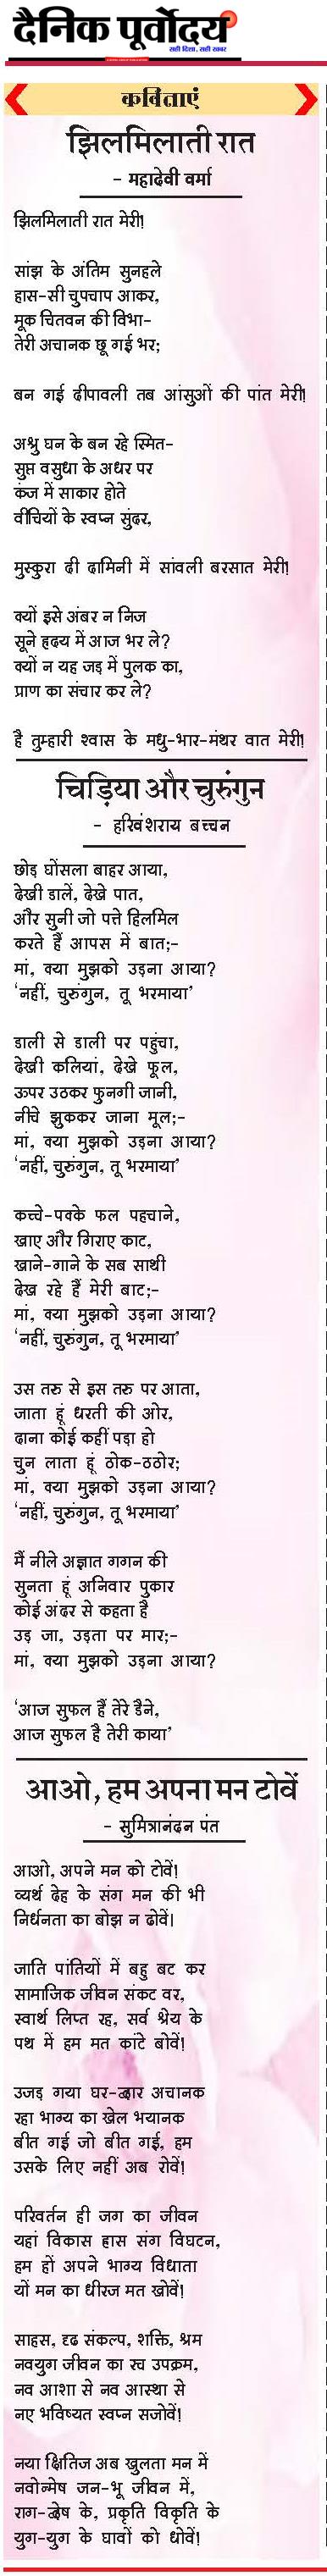 दैनिक पूर्वोदय
सही दिशा, सही खबर
कविताएं
झिलमिलाती रात
- महादेवी वर्मा
झिलमिलाती रात मेरी!
सांझ के अंतिम सुनहले
हास-सी चुपचाप आकर,
मूक चितवन की विभा-
तेरी अचानक छू गई भर;
बन गई दीपावली तब आंसुओं की पांत मेरी!
अश्रु घन के बन रहे स्मित-
सुप्त वसुधा के अधर पर
कंज में साकार होते
वीचियों के स्वप्न सुंदर,
मुस्कुरा दी दामिनी में सांवली बरसात मेरी!
क्यों इसे अंबर न निज
सूने हृदय में आज भर ले?
क्यों न यह जड़ में पुलक का,
प्राण का संचार कर ले?
है तुम्हारी श्वास के मधु-भार-मंथर वात मेरी!
चिड़िया और चुरुंगुन
- हरिवंशराय बच्चन
छोड़ घोंसला बाहर आया,
देखी डालें, देखे पात,
और सुनी जो पत्ते हिलमिल
करते हैं आपस में बात;-
मां, क्या मुझको उड़ना आया?
‘नहीं, चुरुंगुन, तू भरमाया’
डाली से डाली पर पहुंचा,
देखी कलियां, देखे फूल,
ऊपर उठकर फुनगी जानी,
नीचे झुककर जाना मूल;-
मां, क्या मुझको उड़ना आया?
‘नहीं, चुरुंगुन, तू भरमाया’
कच्चे-पक्के फल पहचाने,
खाए और गिराए काट,
खाने-गाने के सब साथी
देख रहे हैं मेरी बाट;-
मां, क्या मुझको उड़ना आया?
‘नहीं, चुरुंगुन, तू भरमाया’
उस तरु से इस तरु पर आता,
जाता हूं धरती की ओर,
दाना कोई कहीं पड़ा हो
चुन लाता हूं ठोक-ठठोर;
मां, क्या मुझको उड़ना आया?
‘नहीं, चुरुंगुन, तू भरमाया’
मैं नीले अज्ञात गगन की
सुनता हूं अनिवार पुकार
कोई अंदर से कहता है
उड़ जा, उड़ता पर मार;-
मां, क्या मुझको उड़ना आया?
‘आज सुफल हैं तेरे डैने,
आज सुफल है तेरी काया’
आओ, हम अपना मन टोवें
- सुमित्रानंदन पंत
आओ, अपने मन को टोवें!
व्यर्थ देह के संग मन की भी
निर्धनता का बोझ न ढोवें।
जाति पांतियों में बहु बट कर
सामाजिक जीवन संकट वर,
स्वार्थ लिप्त रह, सर्व श्रेय के
पथ में हम मत कांटे बोवें!
उजड़ गया घर-द्वार अचानक
रहा भाग्य का खेल भयानक
बीत गई जो बीत गई, हम
उसके लिए नहीं अब रोवें!
परिवर्तन ही जग का जीवन
यहां विकास ह्रास संग विघटन,
हम हों अपने भाग्य विधाता
यों मन का धीरज मत खोवें!
साहस, दृढ संकल्प, शक्ति, श्रम
नवयुग जीवन का रच उपक्रम,
नव आशा से नव आस्था से
नए भविष्यत स्वप्न सजोवें!
नया क्षितिज अब खुलता मन में
नवोन्मेष जन-भू जीवन में,
राग-द्वेष के, प्रकृति विकृति के
युग-युग के घावों को धोवें!